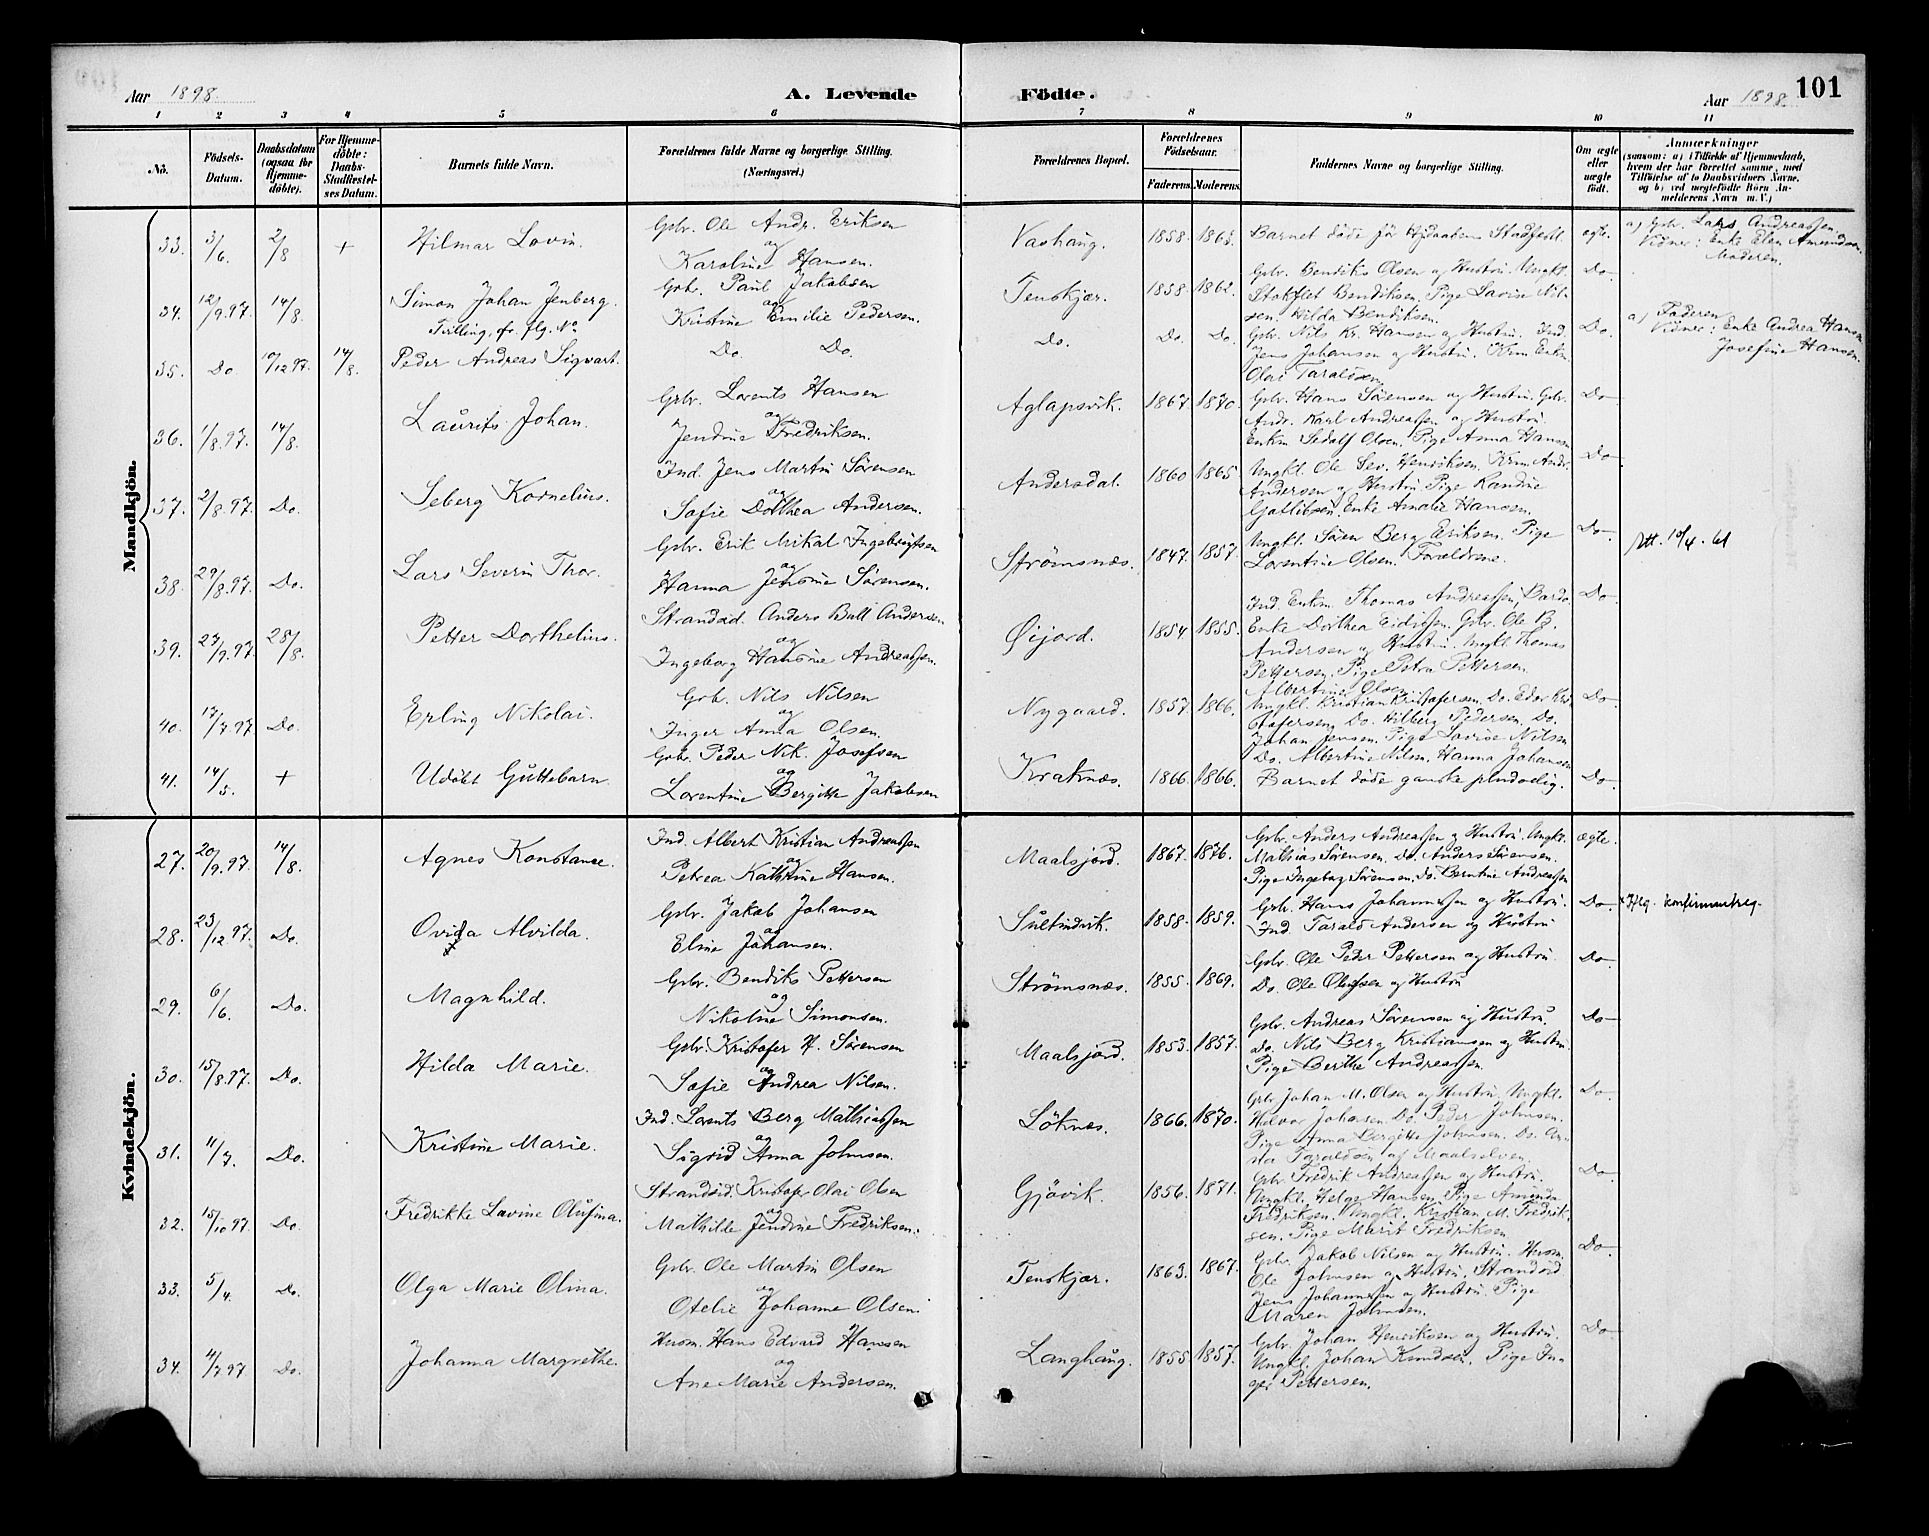 Aar 1898.
A. Levende
Födte.
Aar 1898.
101
1 2 3 4 5 6 7 8 9 10 11
No.
Födsels-Datum.
Daabsdatum (ogsaa for Hjemme-döbte).
For Hjemme-döbte: Daabs-Stadfæstel-ses Datum.
Barnets fulde Navn.
Forældrenes fulde Navne og borgerlige Stilling. (Næringsvei.)
Forældrenes Bopæl.
Forældrenes Födselsaar.
Faderens.
Moderens.
Faddernes Navne og borgerlige Stilling.
Om ægte eller uægte födt.
Anmærkninger
(saasom: a) i Tilfælde af Hjemmedaab,
hvem der har forrettet samme, med
Tilföielse af to Daabsvidners Navne,
og b) ved uægtefödte Börn An-
melderens Navn m. V.)
Mandkjön.
33. 3/6. 2/8 + Hilmar Lovin. Gbr. Ole Andr. Eriksen og Karoline Hansen. 1858. 1865. Barnet döde för Hjdaabens Stadfæst. ægte. a) Gbr. Lars Andreassen. Vidner: Enke Elen Amundsen, Moderen.
34. 12/9.97. 14/8. Simon Johan Jenberg. Tvilling, fr. flg. No Gbr. Paul Jakobsen og Kristine Emilie Pedersen. Tenskjær. 1858. 1862. Gbr. Bendiks Olsen og Hustru. Ungkl. Stokflet Bendiksen. Pige Lavise Nilsen, Hilda Bendiksen. Do
35. Do 10/12 97. 14/8. Peder Andreas Sigvart. Do. Do. Do. Do. Do. Gbr. Nils Kr. Hansen og Hustru. Ind. Jens Johansen og Hustru. Olai Taraldsen. Do. a) Faderen. Vidner: Enke Andrea Hansen Josefine Hansen.
36. 1/8.97. 14/8. Laurits Johan. Gbr. Lorents Hansen og Jendine Fredriksen. Aglapsvik. 1867. 1870. Gbr. Hans Sörensen og Hustru. Gbr. Andr. Karl Andreassen og Hustru. Enkm Sedolf Olsen. Pige Anna Hansen Do
37. 2/8.97. Do. Seberg Kornelius. Ind. Jens Martin Sörensen og Sofie Dorthea Andersen. Andersdal. 1860 1865. Ungkl. Ole Sev. Henriksen. Andersen og Hustru. Pige Gotlibsen. Enke Amalie Hansen. Do
38. 29/8.97. Do. Lars Severin Thor. Gbr. Erik Mikal Ingebrigtsen og Hanna Jensine Sörensen. Strömsnæs. 1847. 1857. Ungkl. Sören Berg Eriksen. Pige Lorentine Olsen. Forældrene. Do. Att. 10/4. 61
39. 27/9.97. 28/8. Petter Dorthelius. Strandsid. Anders Ball Andersen og Ingeborg Hansine Andreassen. Øijord. 1854. 1855. Ind. Enkm. Thomas Andreassen, Bardo. Enke Dorthea Eidissen. Gbr. Ole B. Andersen og Hustru. Ungkl. Thomas Pettersen. Pige Petra Pettersen. Albertine Olsen. Do.
40. 17/7.97. Do. Erling Nikolai. Gbr. Nils Nilsen og Inger Anna Olsen. Nygaard. 1857. 1866. Ungkl. Kristian Kristofersen. Do. Edor Kristofersen, Do. Hilberg Pedersen. Do. Johan Jensen. Pige Lovise Nilsen Do. Albertine Nilsen, Hanna Johansen Do
41. 14/5. + Udöbt Guttebarn. Gbr. Peder Nik. Josefsen og Lorentine Bergitte Jakobsen Kraknæs. 1866. 1866. Barnet döde ganske pludselig. Do.
Kvindekjön.
27. 20/9.97. 14/8. Agnes Konstanse. Ind. Albert Kristian Andreassen og Petrea Kathrine Hansen. Maalsjord. 1867. 1876. Gbr. Anders Andreassen og Hustru. Ungkl. Mathias Sörensen. Do. Anders Sörensen. Pige Ingeborg Sörensen. Do. Berntine Andreassen ægte.
28. 23/12.97. Do. Ovida Alvilda. Gbr. Jakob Johansen og Eline Johansen. Sultindvik. 1858. 1859. Gbr. Hans Johannessen og Hustru. Ind. Tarald Andersen og Hustru Do. konfirmantreg.
29. 6/6. Do. Magnhild. Gbr. Bendiks Pettersen og Nikoline Simonsen. Strömsnæs. 1855. 1869. Gbr. Ole Peder Pettersen og Hustru. Do. Ole Olufsen og Hustru Do
30. 15/8.97. Do. Hilda Marie. Gbr. Kristofer H. Sörensen og Sofie Andrea Nilsen. Maalsjord. 1853. 1857. Gbr. Andreas Sörensen og Hustru. Do. Nils Berg Kristiansen og Hustru. Pige Berthe Andreassen. Do
31. 11/7. Do. Kristine Marie. Ind. Lorents Berg Mathiassen og Sigrid Anna Johnsen. Löknæs. 1866. 1870. Gbr. Johan M. Olsen og Hustru. Ungkl. Halvor Johansen. Do. Peder Johnsen. Pige Anna Bergitte Johnsen. Do. Taraldsen af Maalselven. Do.
32. 15/10 97. Do. Fredrikke Lavine Olufina. Strandsid. Kristofer Olai Olsen og Mathilde Jendine Fredriksen. Gjövik. 1856. 1871. Gbr. Fredrik Andreassen og Hustru. Ungkl. Helge Hansen. Pige Fredriksen. Ungkl. Kristian M. Fredriksen. Pige Marit Fredriksen. Do
33. 5/4. Do. Olga Marie Olina. Gbr. Ole Martin Olsen og Otelie Johanne Olsen. Tenskjær. 1863. 1867. Gbr. Jakob Nilsen og Hustru. Husm. Ole Johnsen og Hustru. Strandsid Jens Johannessen og Hustru. Pige Maren Johnsen. Do
34. 4/7 97 Do. Johanna Margrethe. Husm. Hans Edvard Hansen og Ane Marie Andersen. Langhaug. 1855. 1857. Gbr. Johan Henriksen og Hustru. Ungkl. Johan Knudsen. Pige Inger Pettersen. Do